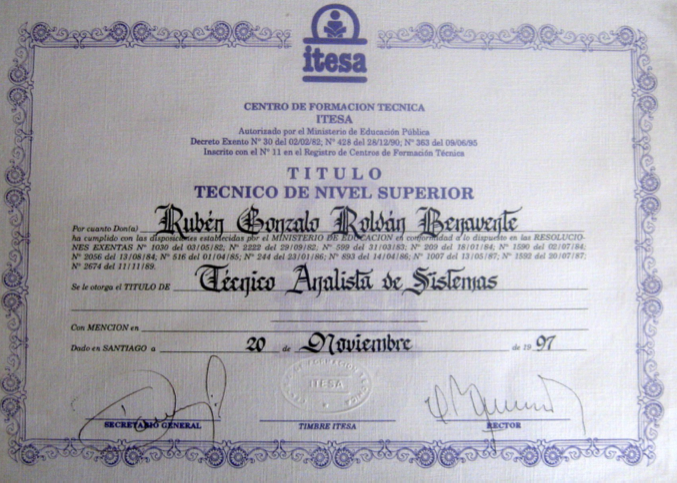 itesa
CENTRO DE FORMACION TECNICA
ITESA
Autorizado por el Ministerio de Educación Pública
Decreto Exento N° 30 del 02/02/82; N° 428 del 28/12/90; N° 363 del 09/06/95
Inscrito con el N° 11 en el Registro de Centros de Formación Técnica
TITULO
TECNICO DE NIVEL SUPERIOR
Por cuanto Don(a) Rubén Gonzalo Roldán Benavente
ha cumplido con las disposiciones establecidas por el MINISTERIO DE EDUCACION en conformidad a lo dispuesto en las RESOLUCIO-
NES EXENTAS N° 1030 del 03/05/82; N° 2222 del 29/09/82; N° 599 del 31/03/83; N° 209 del 18/01/84; N° 1590 del 02/07/84;
N° 2056 del 13/08/84; N° 516 del 01/04/85; N° 244 del 23/01/86; N° 693 del 14/04/86; N° 1007 del 13/05/87; N° 1592 del 20/07/87;
N° 2674 del 11/11/89.
Se le otorga el TITULO DE Técnico Analista de Sistemas
Con MENCION en
Dado en SANTIAGO a 20 de Noviembre de 1997
ITESA
SECRETARIO GENERAL TIMBRE ITESA RECTOR